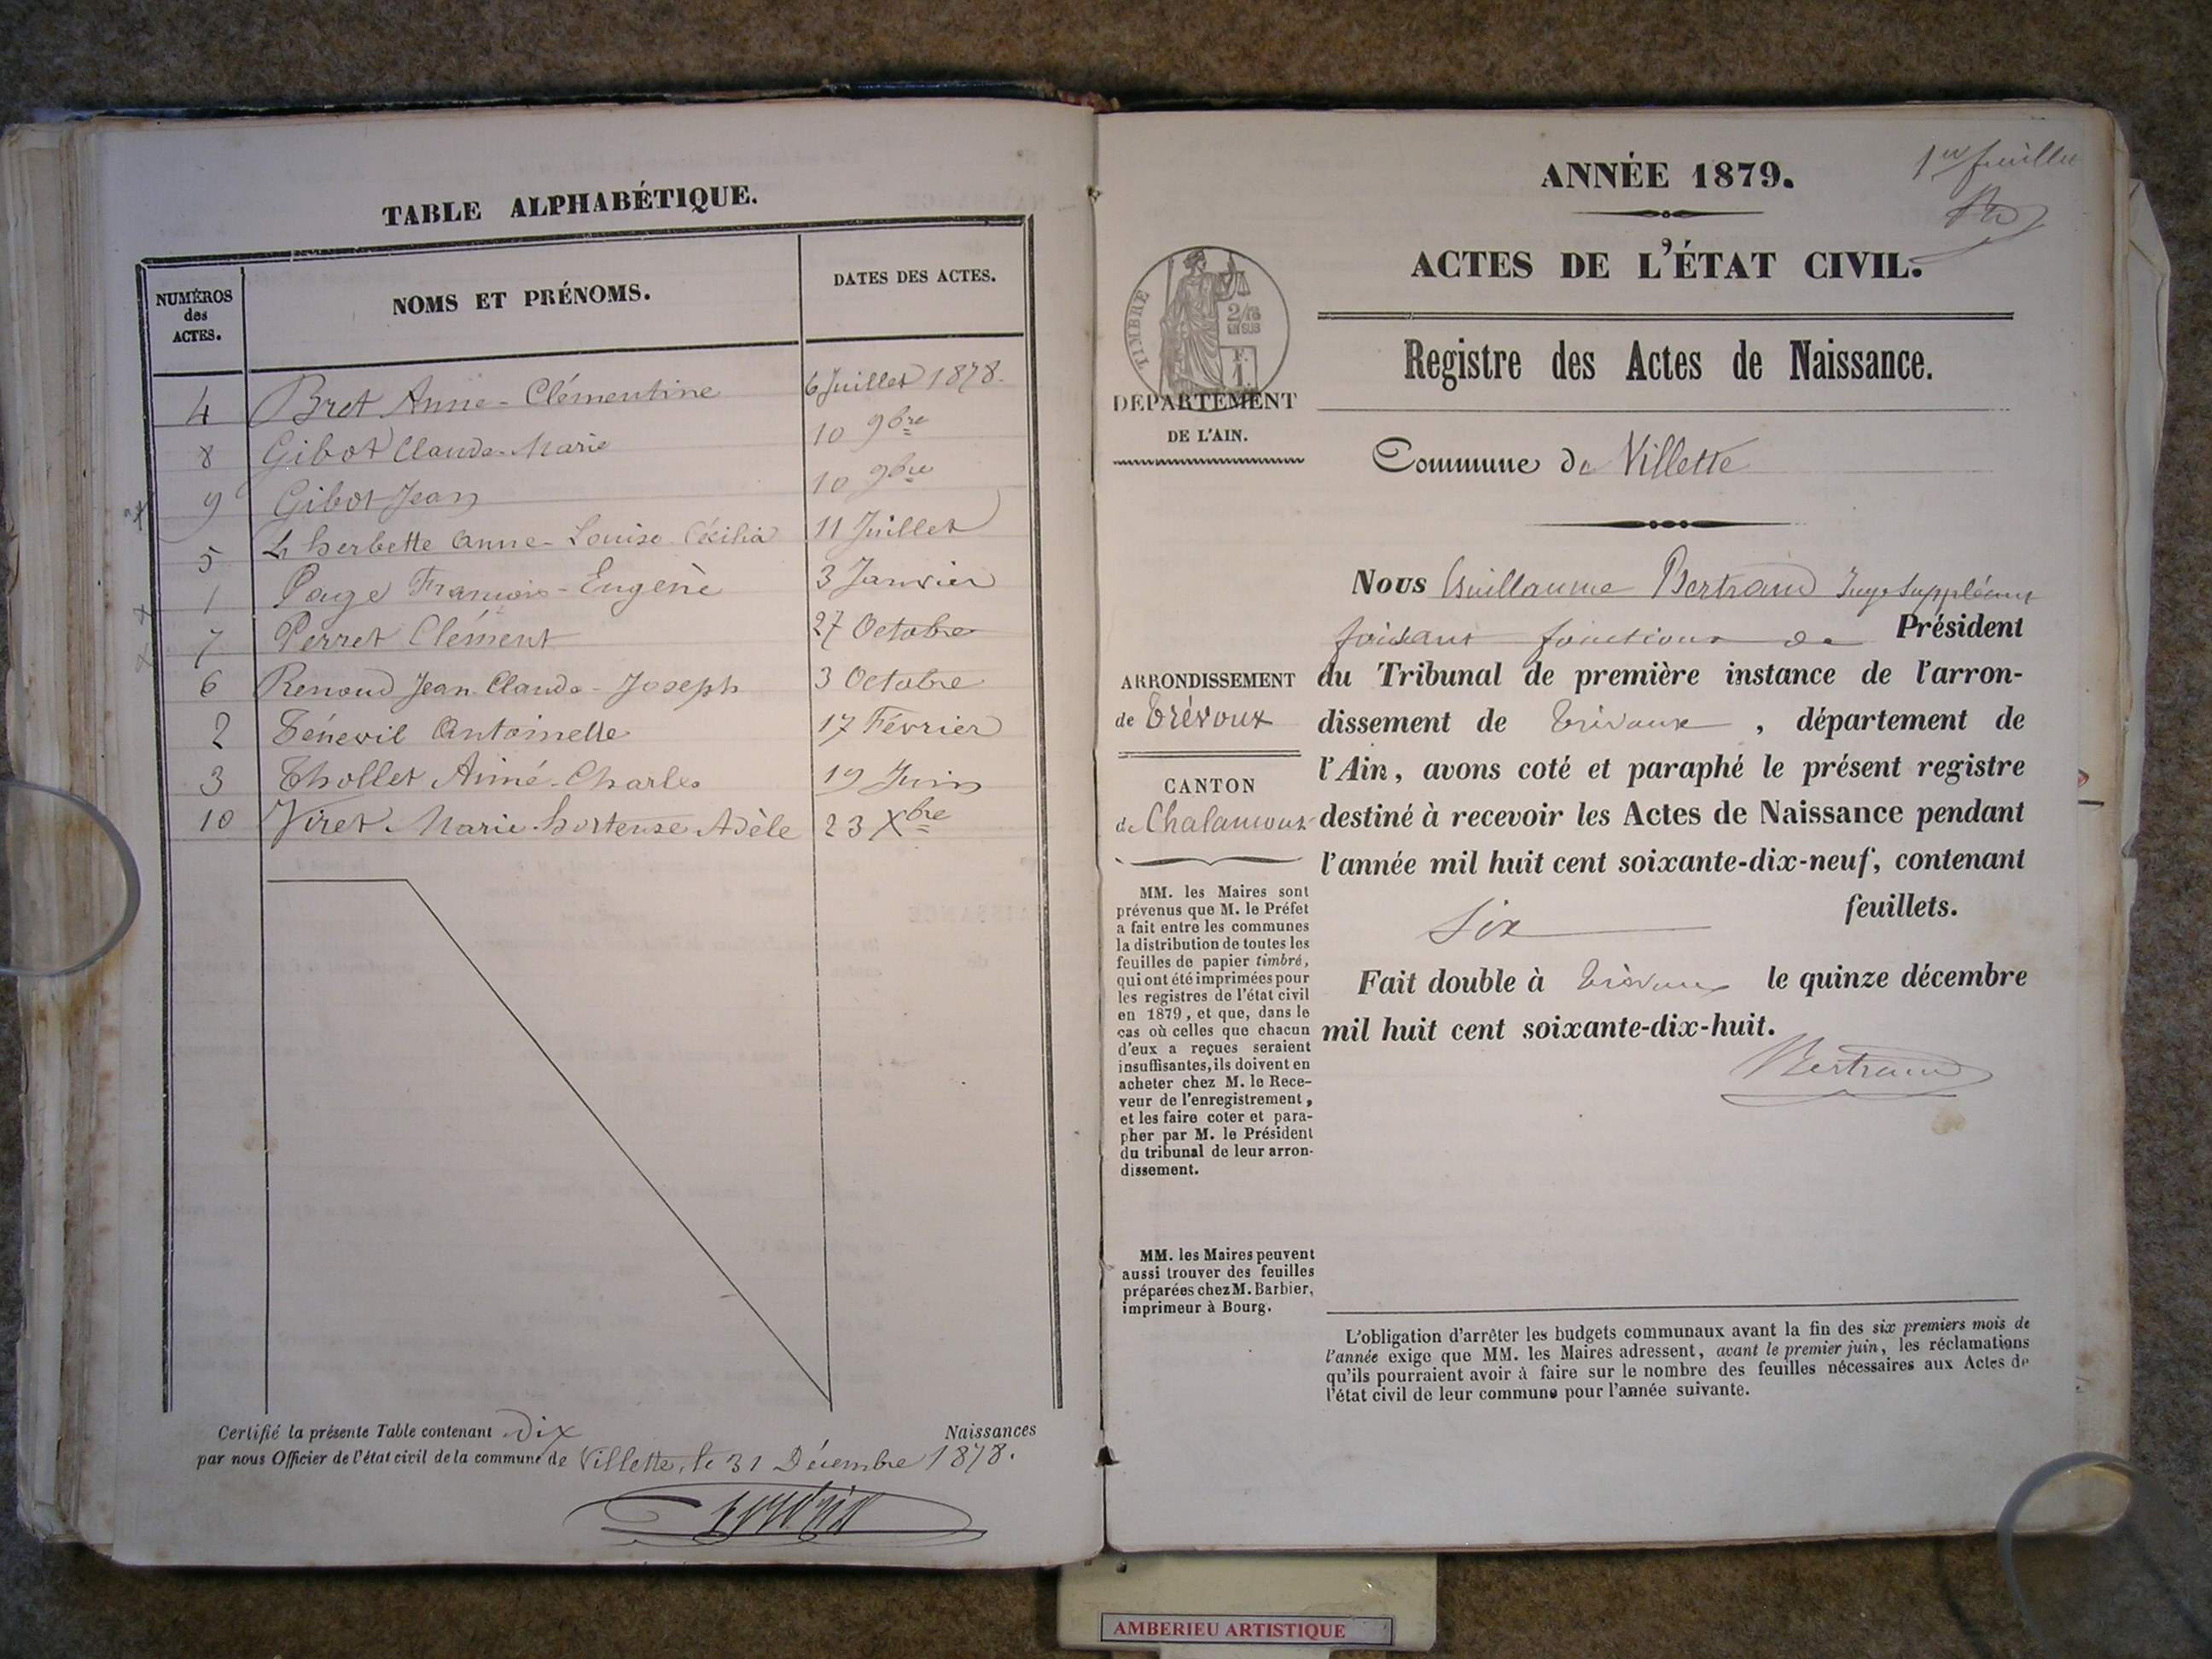 TABLE ALPHABÉTIQUE.
NUMÉROS des ACTES.
NOMS ET PRÉNOMS.
DATES DES ACTES.
4 Bret Anne-Clémentine 6 Juillet 1878.
8 Gibot Claude-Marie 10 9bre
9 Gibot Jean 10 9bre
5 Lherbette Anne-Louise Cécilia 11 Juillet
1 Page François-Eugène 3 Janvier
7 Perret Clément 27 Octobre
6 Renoud Jean-Claude-Joseph 3 Octobre
2 Antoinette 17 Février
3 Thollet Aimé-Charles 19 Juin
10 Viret Marie-hortense Adèle 23 Xbre
Certifié la présente Table contenant Dix Naissances
par nous Officier de l'état civil de la commune de Villette, le 31 Décembre 1878.
1er feuillet
ANNÉE 1879.
ACTES DE L'ÉTAT CIVIL.
Registre des Actes de Naissance.
TIMBRE
2/10
EN SUS
F.
1.
DÉPARTEMENT
DE L'AIN.
Commune de Villette
Nous Guillaume Bertrand Juge Suppléant
faisant fonctions de Président
du Tribunal de première instance de l'arron-
dissement de Trévoux, département de
l'Ain, avons coté et paraphé le présent registre
destiné à recevoir les Actes de Naissance pendant
l'année mil huit cent soixante-dix-neuf, contenant
Six feuillets.
Fait double à Trévoux le quinze décembre
mil huit cent soixante-dix-huit.
Bertrand
ARRONDISSEMENT
de Trévoux
CANTON
de Chalamont
MM. les Maires sont
prévenus que M. le Préfet
a fait entre les communes
la distribution de toutes les
feuilles de papier timbré,
qui ont été imprimées pour
les registres de l'état civil
en 1879, et que, dans le
cas où celles que chacun
d'eux a reçues seraient
insuffisantes, ils doivent en
acheter chez M. le Rece-
veur de l'enregistrement,
et les faire coter et para-
pher par M. le Président
du tribunal de leur arron-
dissement.
MM. les Maires peuvent
aussi trouver des feuilles
préparées chez M. Barbier,
imprimeur à Bourg.
L'obligation d'arrêter les budgets communaux avant la fin des six premiers mois de
l'année exige que MM. les Maires adressent, avant le premier juin, les réclamations
qu'ils pourraient avoir à faire sur le nombre des feuilles nécessaires aux Actes de
l'état civil de leur commune pour l'année suivante.
AMBERIEU ARTISTIQUE